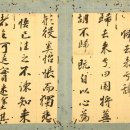 歸去来兮田園将蕪
胡不歸既自以心為
形役奚惆悵而獨
悲悟已往之不諫知来
者之可追實迷